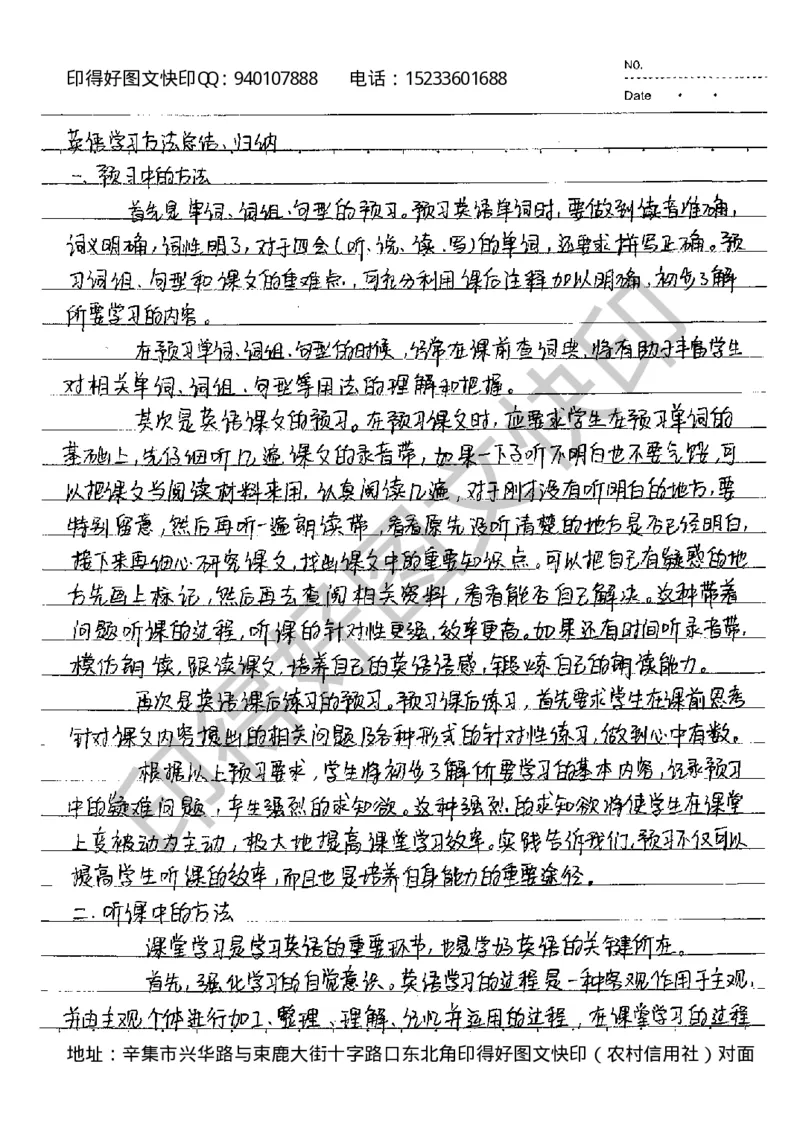 印得好图文快印QQ：940107888 电话：15233601688
NO.
Date
英语学习方法总结、归纳
一、预习中的方法
首先是单词、词组、句型的预习。预习英语单词时，要做到读音准确，
词义明确，词性明了，对于四会（听、说、读、写）的单词，还要求拼写正确。预
习词组、句型和课文的重难点，可充分利用课后注释加以明确，初步了解
所要学习的内容。
在预习单词、词组、句型的时候，经常在课前查词典，将有助于丰富学生
对相关单词、词组、句型等用法的理解和把握。
其次是英语课文的预习。在预习课文时，应要求学生在预习单词的
基础上，先仔细听几遍课文的录音带，如果一下子听不明白也不要气馁，可
以把课文当阅读材料来用，认真阅读几遍，对于刚才没有听明白的地方，要
特别留意，然后再听一遍朗读带，看看原先没听清楚的地方是否已经明白，
接下来再细心研究课文，找出课文中的重要知识点。可以把自己有疑惑的地
方先画上标记，然后再去查阅相关资料，看看能否自己解决。这种带着
问题听课的过程，听课的针对性更强，效率更高。如果还有时间听录音带，
模仿朗读，跟读课文，培养自己的英语语感，锻炼自己的朗读能力。
再次是英语课后练习的预习。预习课后练习，首先要求学生在课前思考
针对课文内容提出的相关问题及各种形式的针对性练习，做到心中有数。
根据以上预习要求，学生将初步了解所要学习的基本内容，记录预习
中的疑难问题，产生强烈的求知欲。这种强烈的求知欲将使学生在课堂
上变被动为主动，极大地提高课堂学习效率。实践告诉我们，预习不仅可以
提高学生听课的效率，而且也是培养自身能力的重要途径。
二、听课中的方法
课堂学习是学习英语的重要环节，也是学好英语的关键所在。
首先，强化学习的自觉意识。英语学习的过程是一种客观作用于主观，
并由主观个体进行加工、整理、理解、记忆并运用的过程，在课堂学习的过程
地址：辛集市兴华路与束鹿大街十字路口东北角印得好图文快印（农村信用社）对面
印得好图文快印